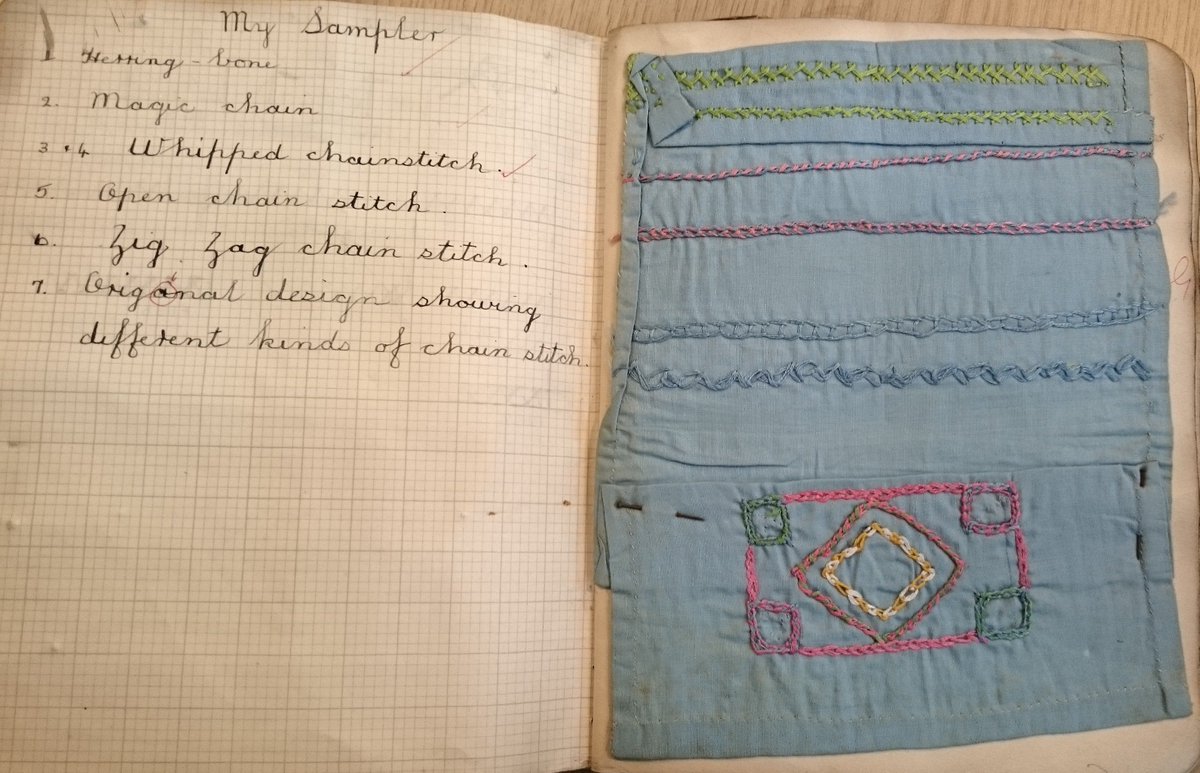 My Sampler
1 Herring-bone
2. Magic chain
3.4 Whipped chainstitch.
5. Open chain stitch.
6. Zig Zag chain stitch.
7. Origanal design showing
different kinds of chain stitch.